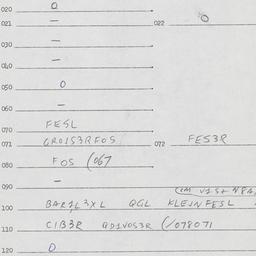 020 0
021 — 022 0
030 —
040 —
050 0
060 —
070 FESL
071 GROISBRFOS 072 FES3R
080 FOS (067
090 —
100 BARZL 3XL QGL KLEJNFESL
110 CIB3R QDIVOS3R (/078071
120 0